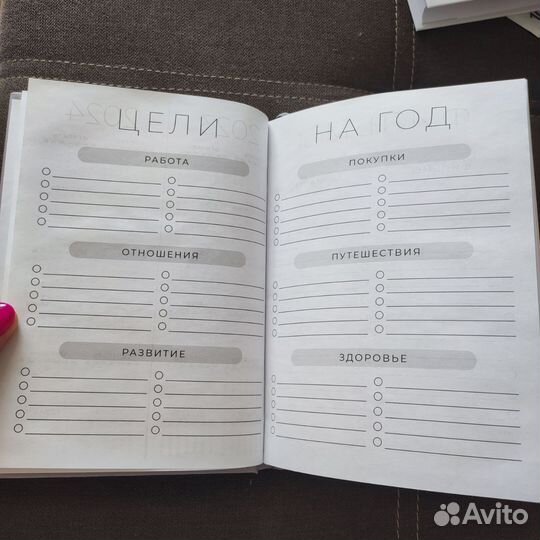 ЦЕЛИ
РАБОТА
ОТНОШЕНИЯ
РАЗВИТИЕ
НА ГОД
ПОКУПКИ
ПУТЕШЕСТВИЯ
ЗДОРОВЬЕ
Avito